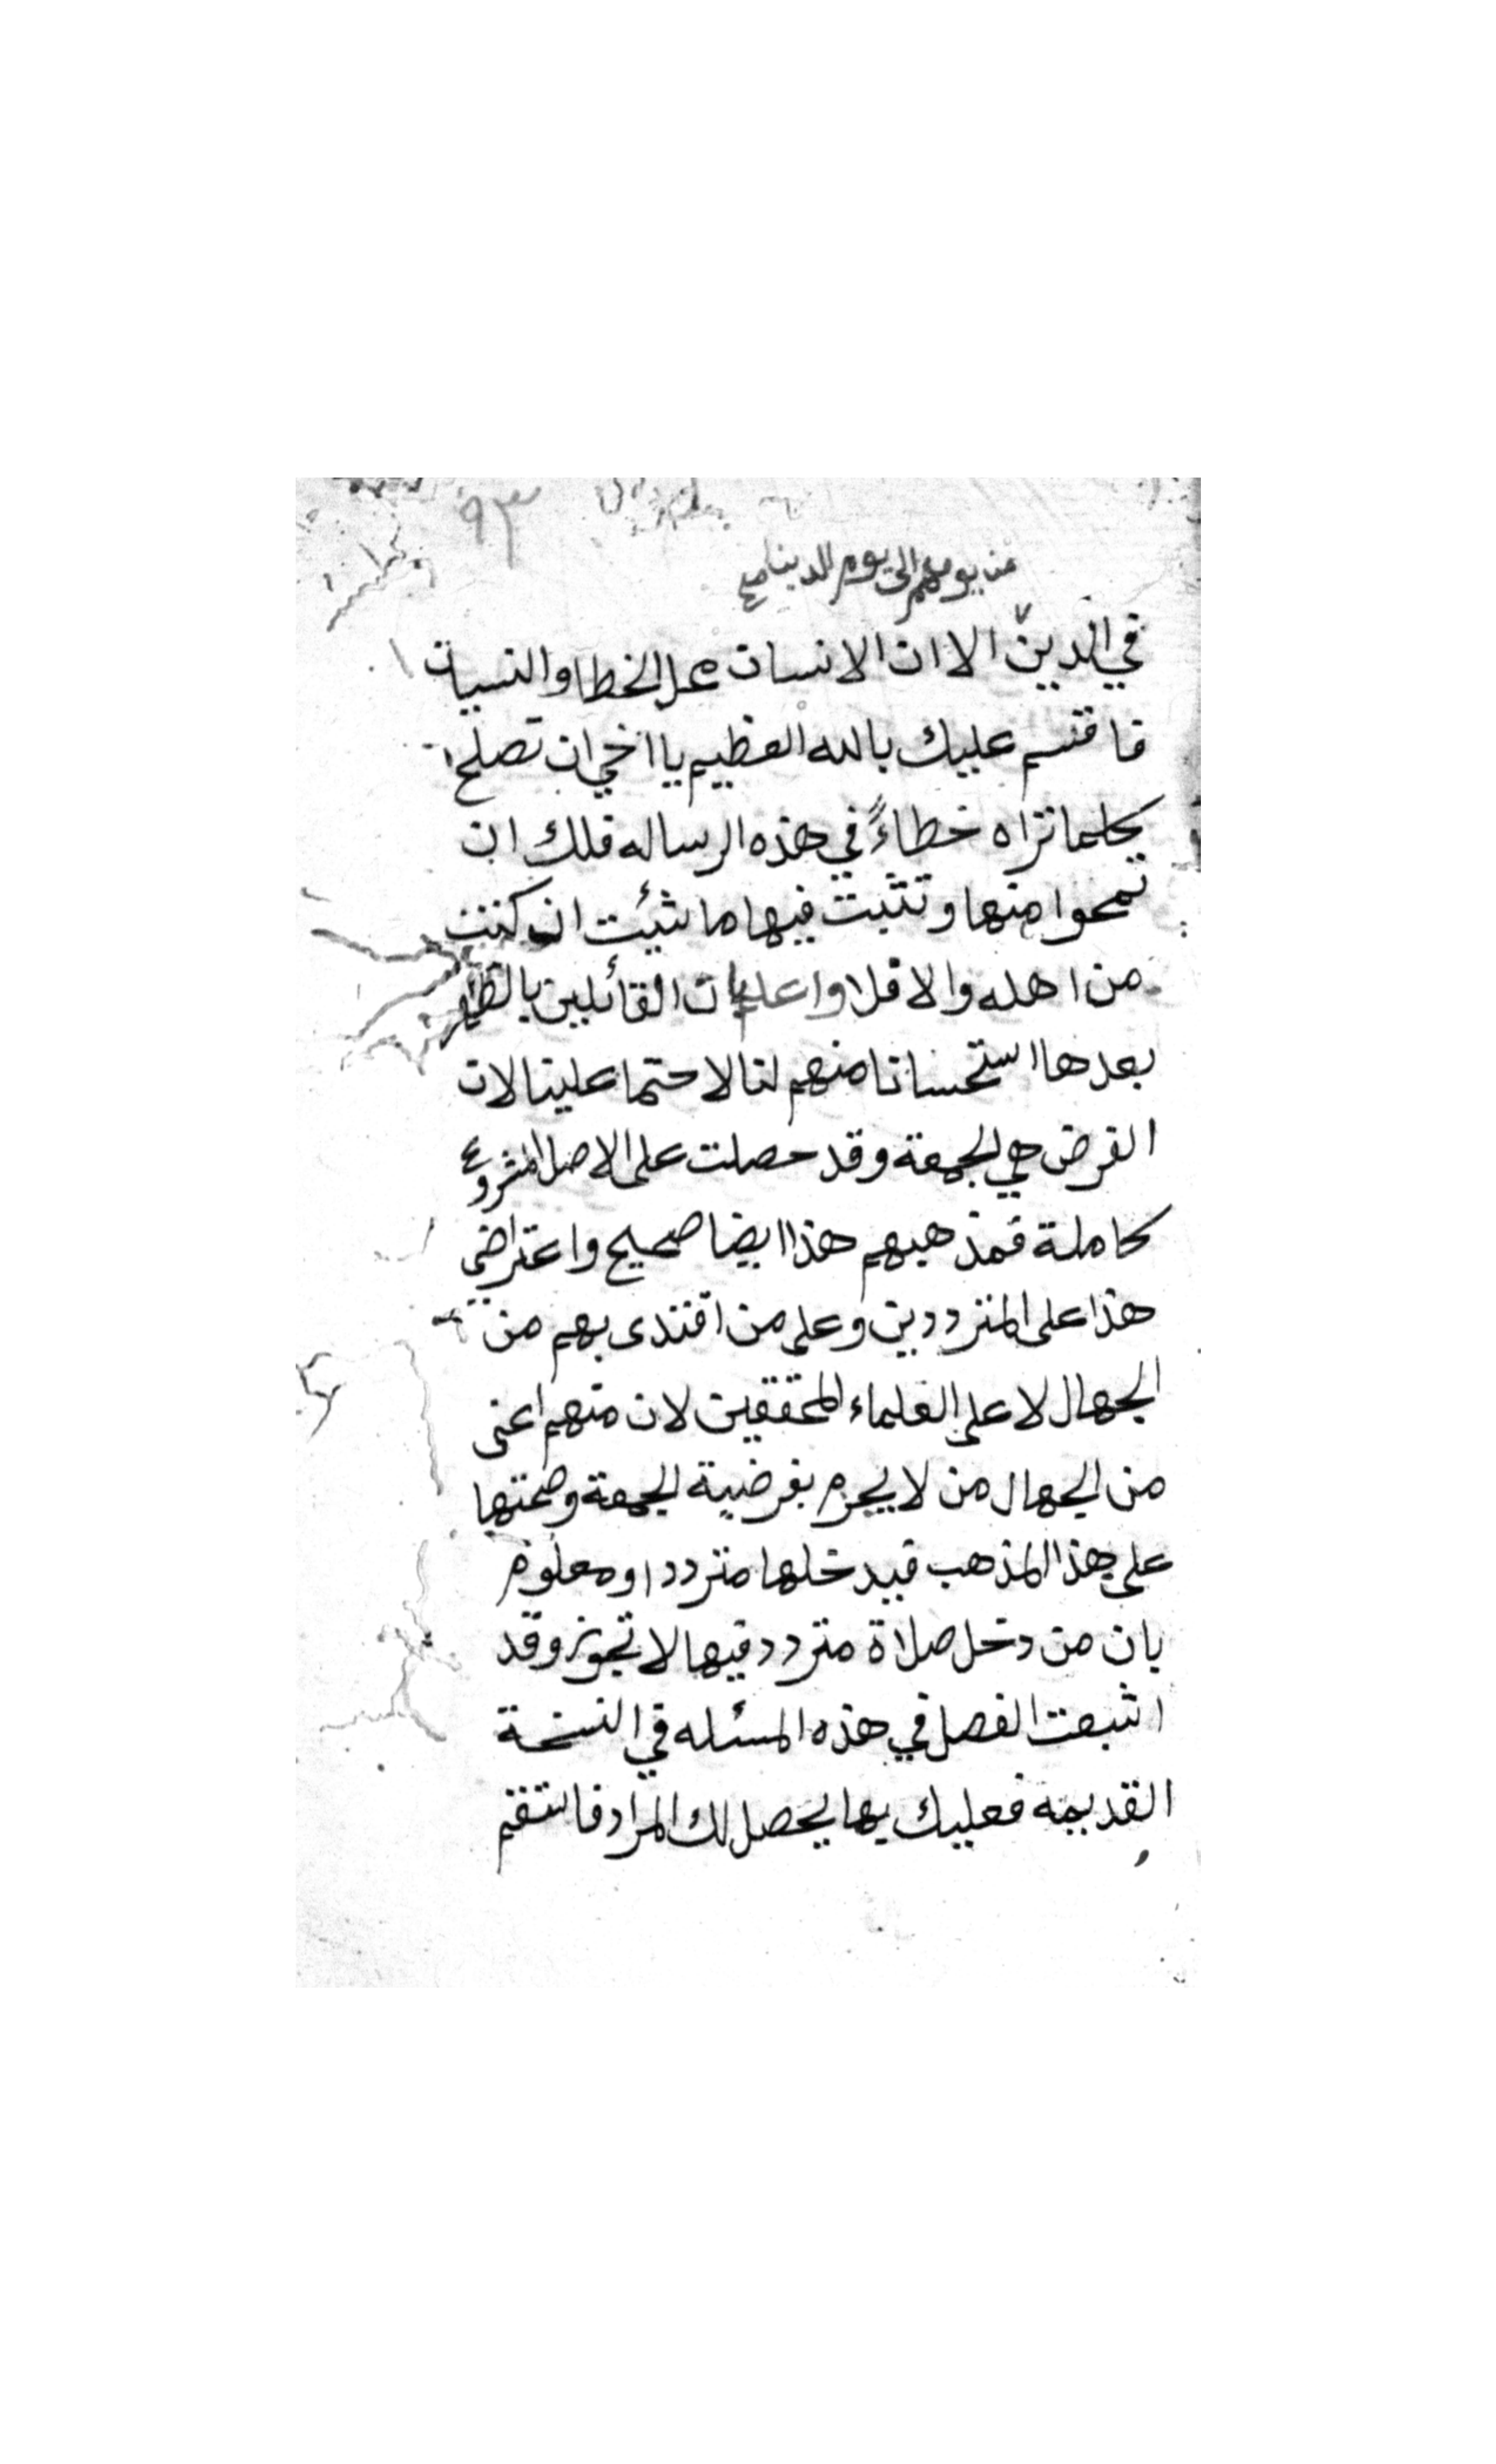 ٩٣
من يومهم الى يوم الدينا صح
في الدين الا ان الانسان محل الخطا والنسيان
فاقسم عليك بالله العظيم يا اخي ان تصلح
كلما تراه خطاءً في هذه الرساله فلك ان
تمحوا منها وتثبت فيها ما شئت ان كنت
من اهله والا فلا واعلم بان القائلين بالظهر
بعدها استحسانا منهم لنا لا حتما علينا لان
الفرض هي الجمعة وقد حصلت على الاصل المشروع
كاملة فمذهبهم هذا ايضا صحيح واعتراضي
هذا على المترددين وعلى من اقتدى بهم من
الجهال لا على العلماء المحققين لان منهم اعني
من الجهال من لا يجزم بفرضية الجمعة وصحتها
على هذا المذهب فيدخلها مترددا ومعلوم
بان من دخل صلاة متردد فيها لا تجوز وقد
اثبعت الفصل في هذه المسئله في النسخة
القديمه فعليك بها يحصل لك المراد فاستقم